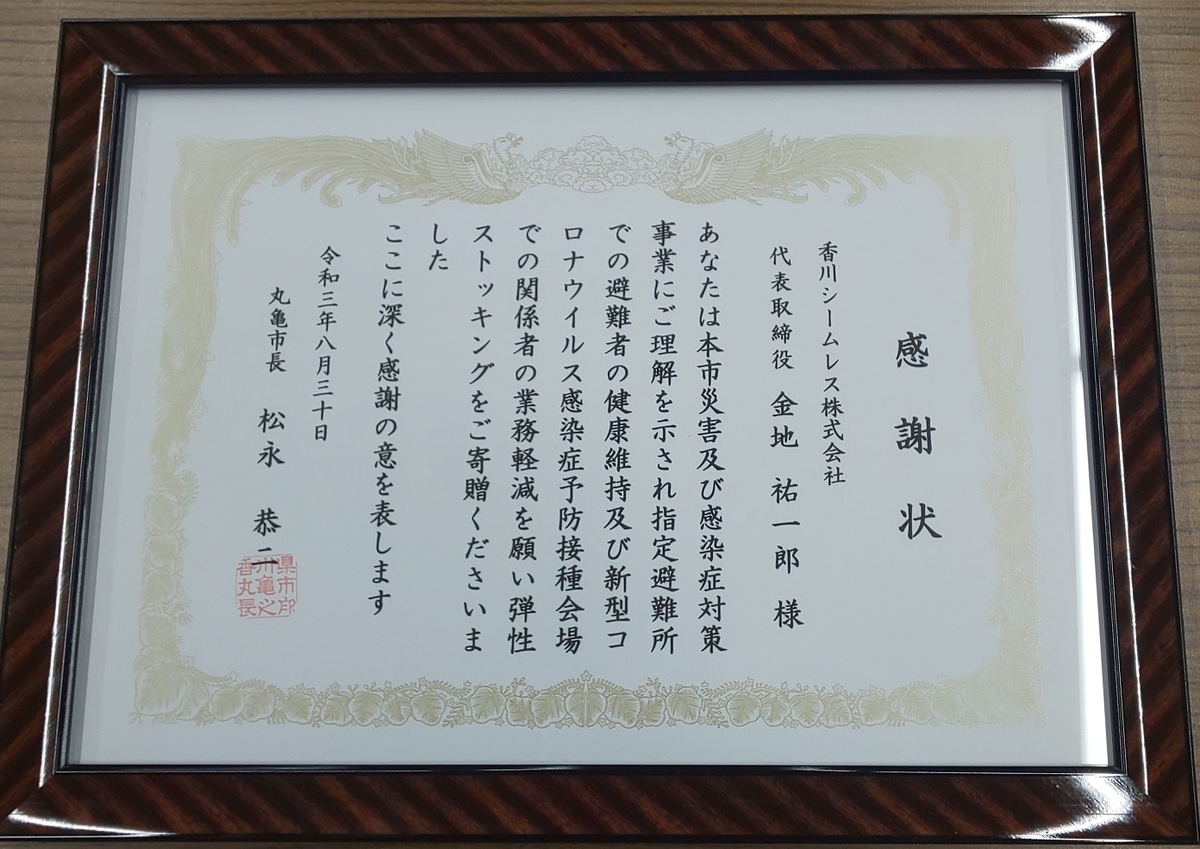 感謝状
香川シームレス株式会社
代表取締役 金地 祐一郎 様
あなたは本市災害及び感染症対策
事業にご理解を示され指定避難所
での避難者の健康維持及び新型コ
ロナウイルス感染症予防接種会場
での関係者の業務軽減を願い弾性
ストッキングをご寄贈くださいま
した
ここに深く感謝の意を表します
令和三年八月三十日
丸亀市長 松永 恭二
県市印
川亀之
香丸長